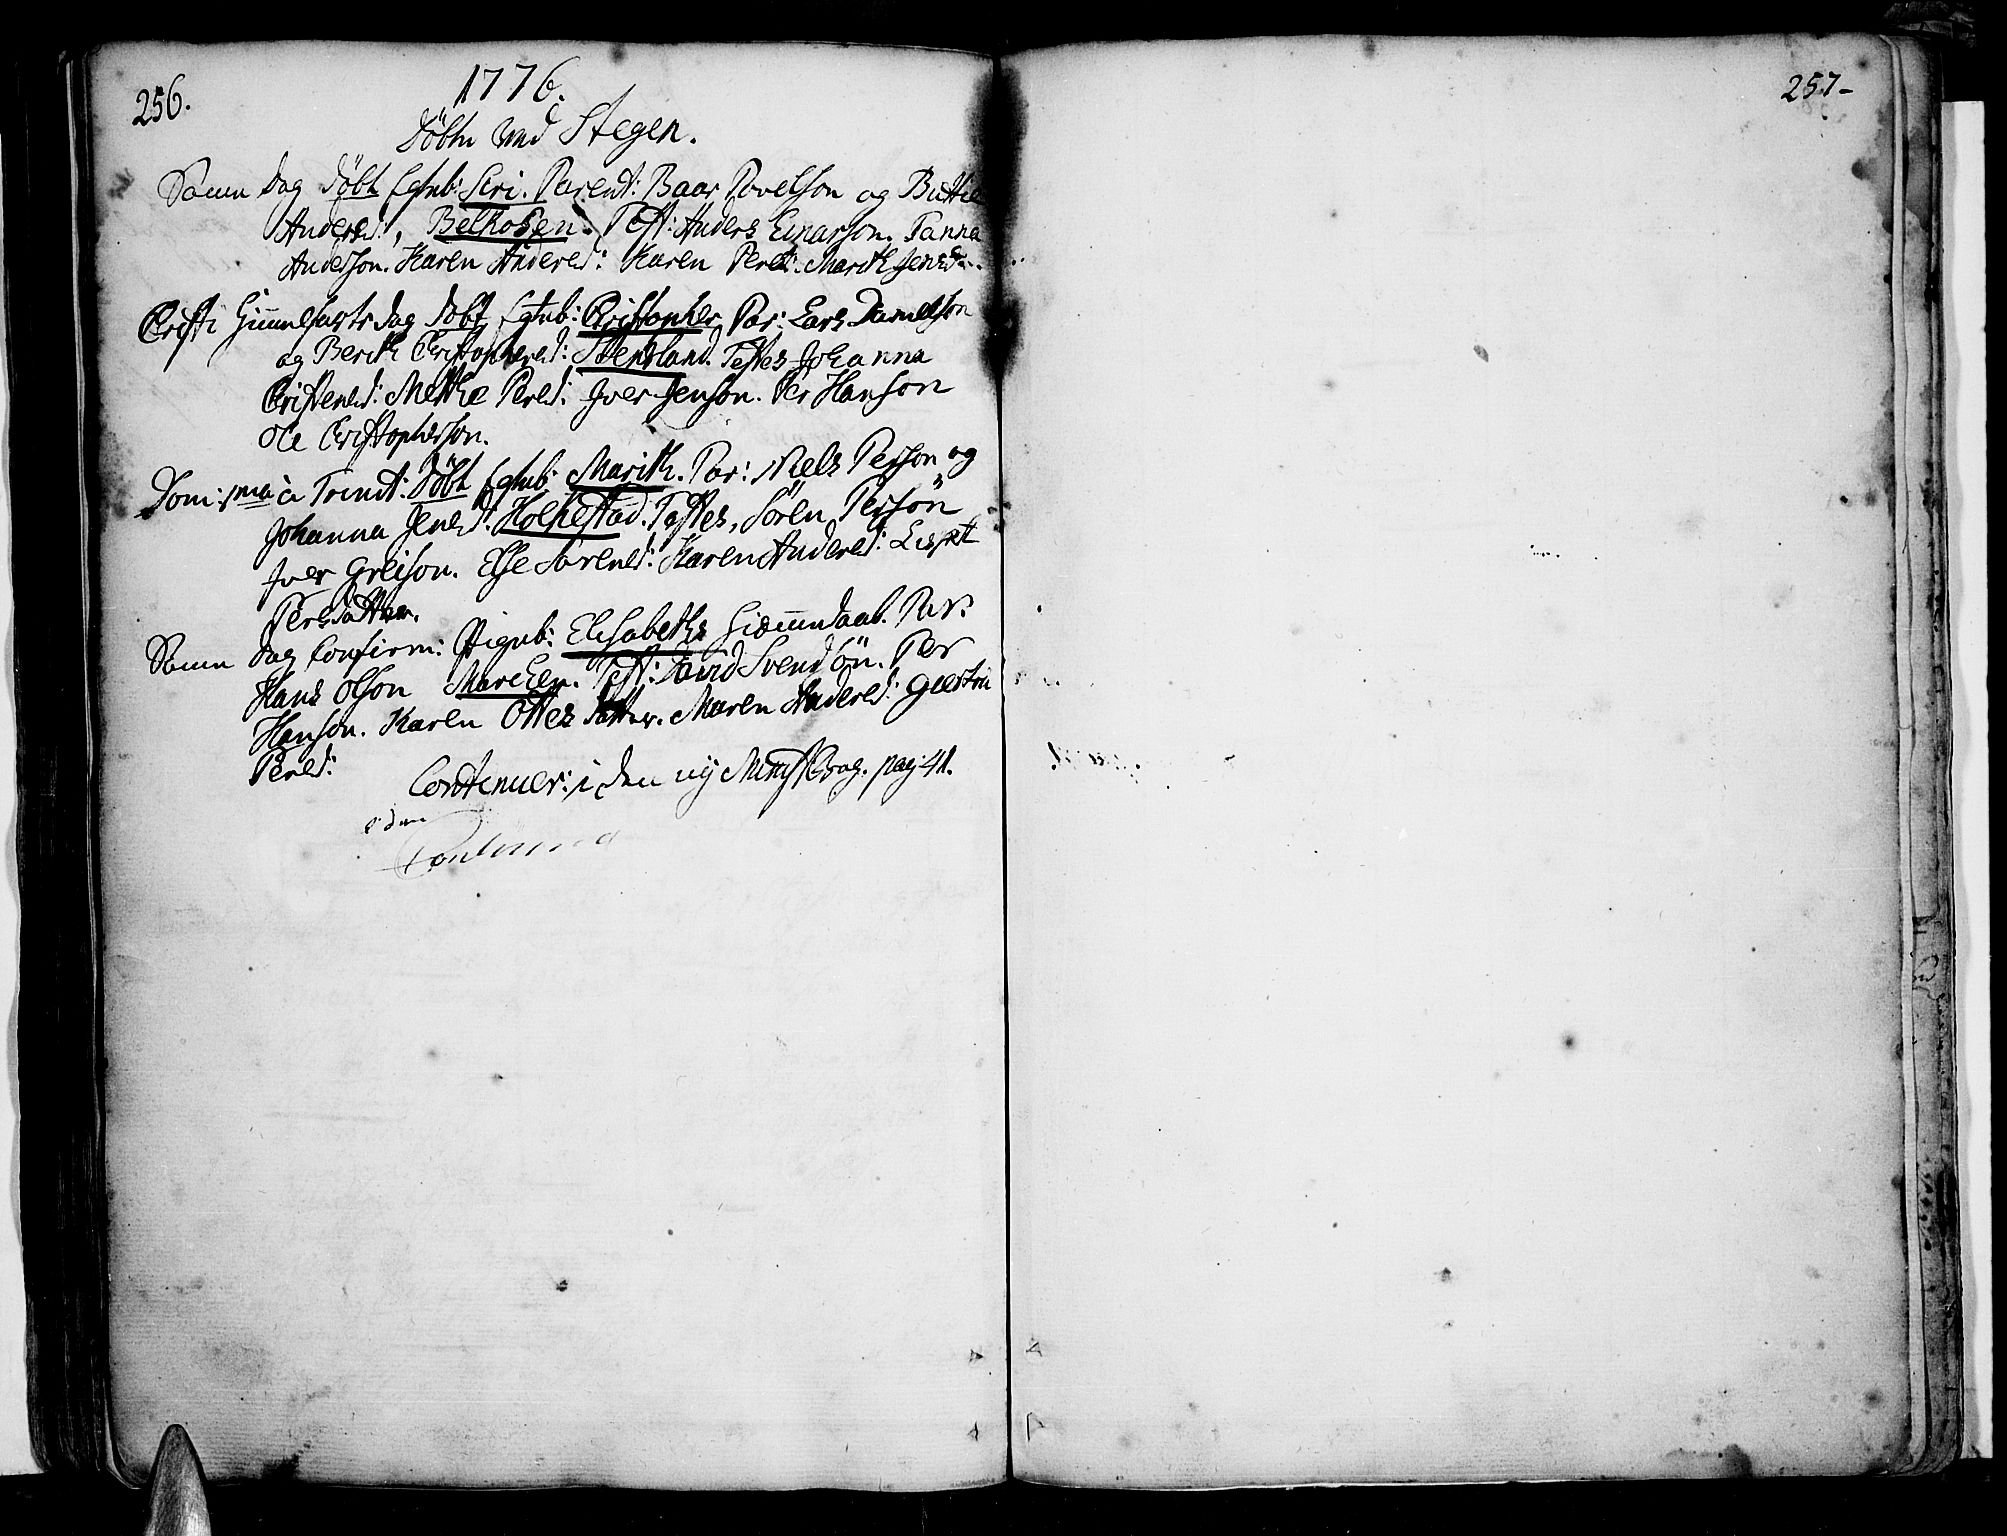 256.
1776.
Döbte ved Stegen.
Samme Dag döbt Egtb: Seri. Parent: Baar Povelson og Birthe
Andersd:, Belkosen. Test: Anders Einarson. Tanna
Anderson. Karen Andersd: Karen Persd: Marith Jensd:
Cristi Himmelfarts dag döbt Egtb: Cristopher Par: Lars Danielson
og Berith Cristophersd: Stensland. Testes Johanna
Cristensd: Methe Persd: Iver Jenson. Per Hanson
Ole Cristopherson.
Dom: 1ma a Trinit: döbt Egtb: Marith. Par: Niels Person og
Johanna Jensd: Holkestad. Testes, Sören Persön
Iver Greison. Else Sörensd: Karen Andersd: Lispet
Persdatter.
Samme dag Confirm: Pigeb: Elisabeth Hiemmedaab. Par:
Hans Olson Marchen. Test: David Svendsön. Per
Hanson. Karen Ottesdatter. Maren Andersd: Giertru
Persd:
Contenuer: i den ny Minist Bog. pag: 41.
257-